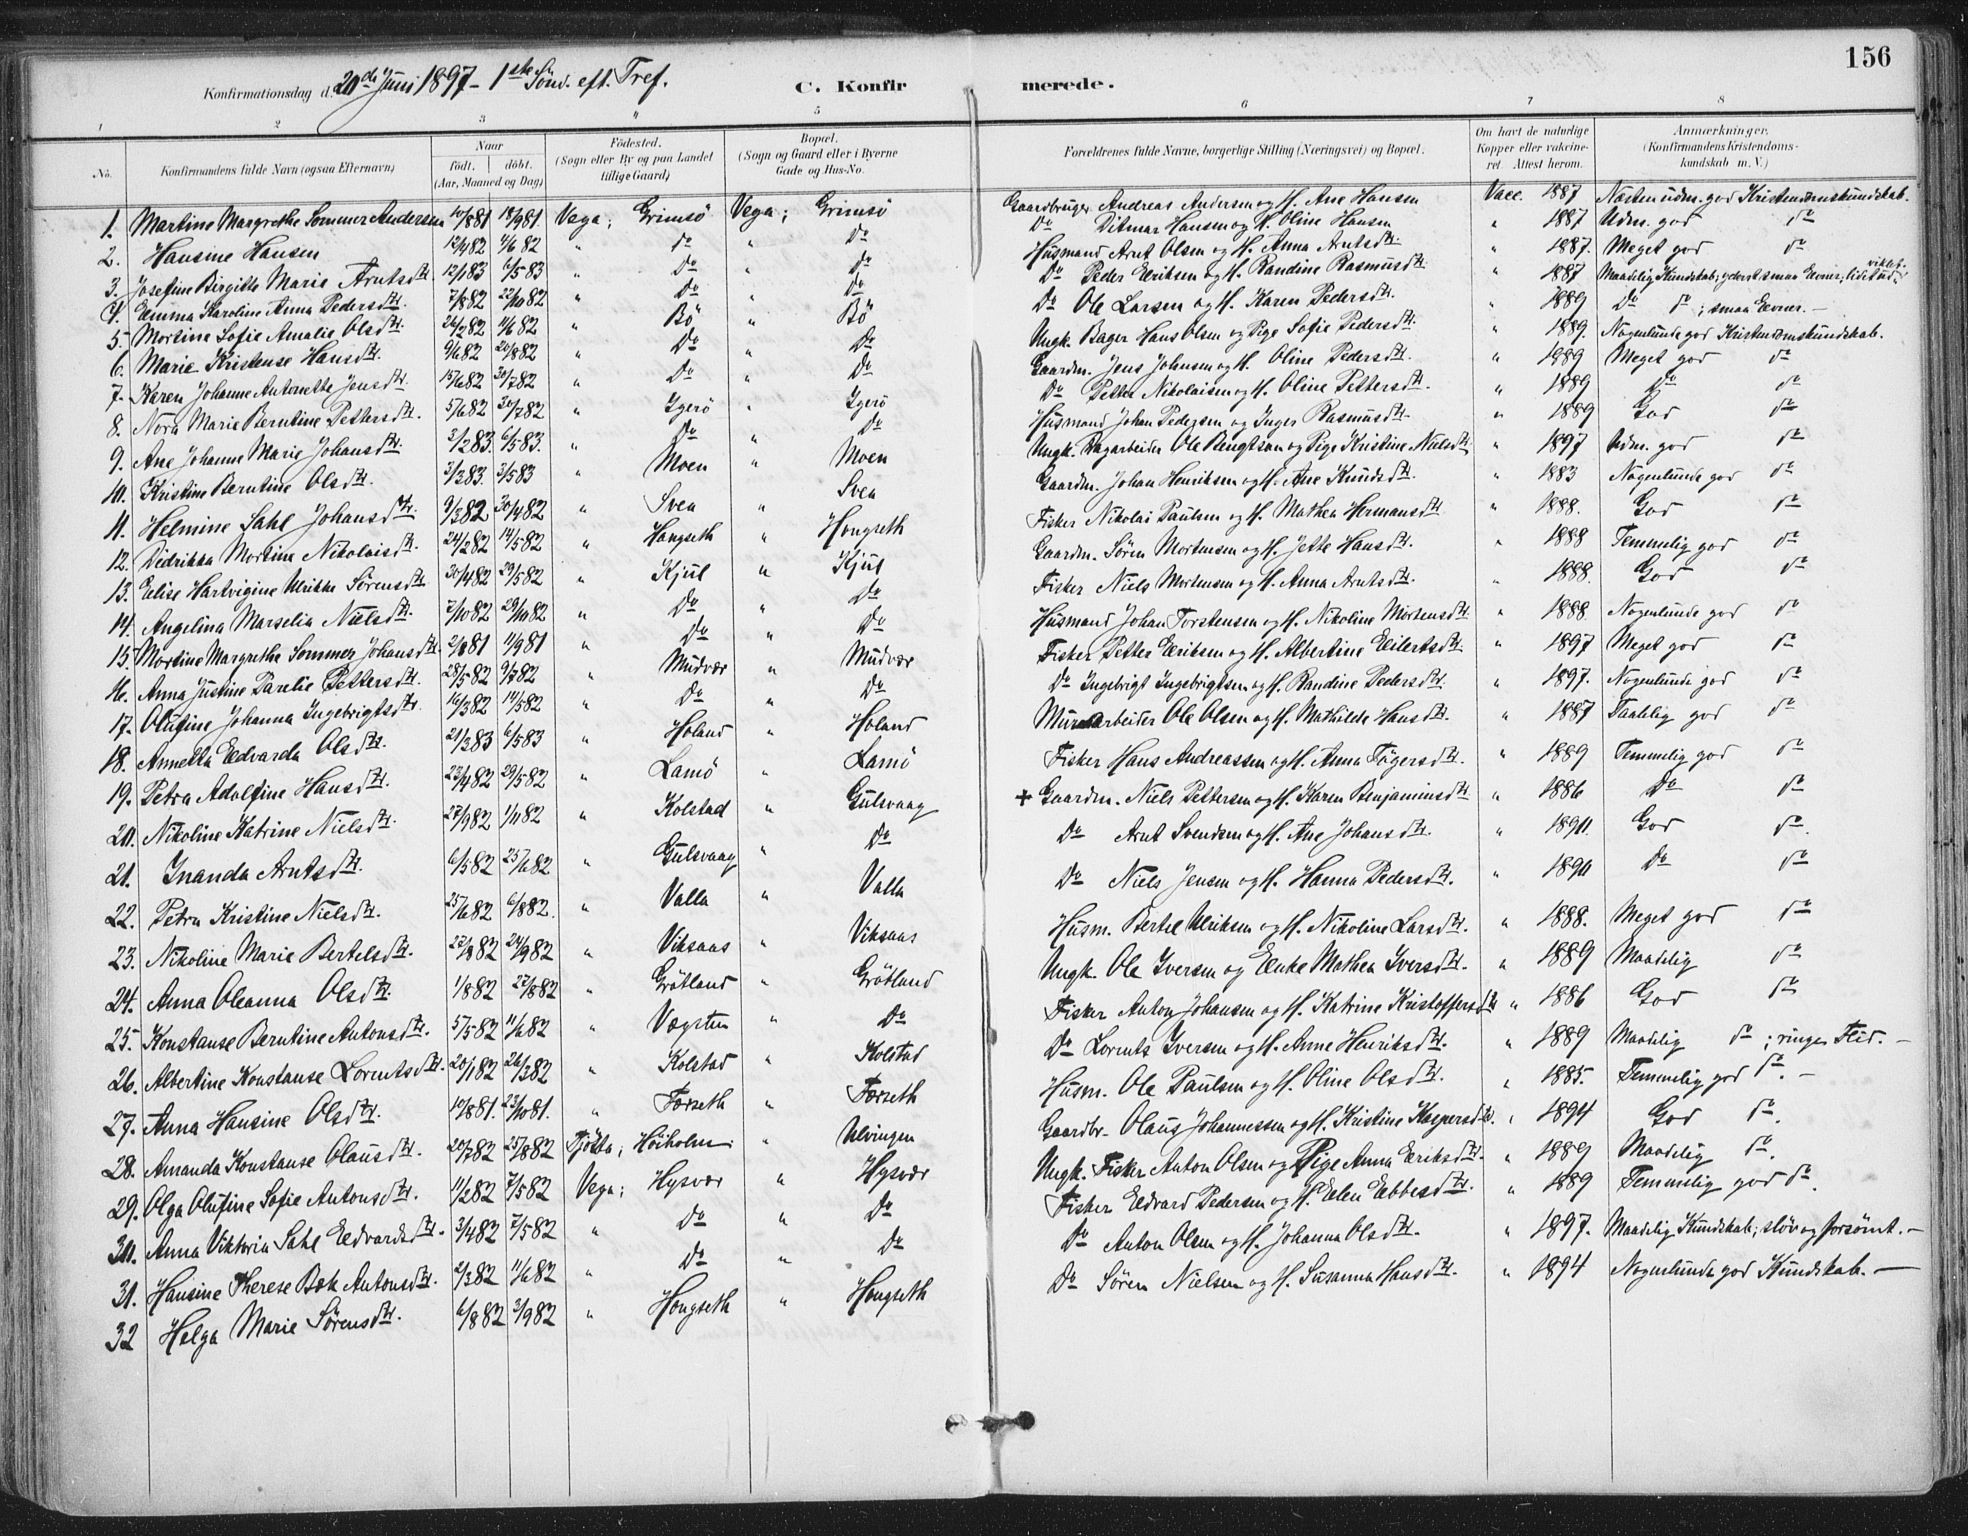 156
Konfirmationsdag d. 20de Juni 1897 - 1ste Sönd. eft. Tref. C. Konfirmerede.
1 2 3 4 5 6 7 8
No. Konfirmandens fulde Navn (ogsaa Efternavn) Naar födt. döbt. (Aar, Maaned og Dag) Födested. (Sogn eller By og paa Landet tillige Gaard) Bopæl. (Sogn og Gaard eller i Byerne Gade og Hus-No. Forældrenes fulde Navne, borgerlige Stilling (Næringsvei) og Bopæl. Om havt de naturlige Kopper eller vakcineret. Attest herom. Anmærkninger. (Konfirmandens Kristendomskundskab m. V.)
1. Martine Margrethe Sommer Andersen 10/881 18/981 Vega; Grimsö Vega; Grimsö Gaardbruger Andreas Andersen og H. Ane Hansen Vacc. 1887 Næsten udm. god Kristendomskundskab.
2. Hansine Hansen 12/482 4/682 " Do " Do Do Ditmar Hansen og H. Oline Hansen " 1887 Udm. god do
3. Josefine Birgitte Marie Arntsdtr. 12/183 6/583 " Do " Do Husmand Arnt Olsen og H. Anna Arntsdtr. " 1887. Meget god do
4. Emma Karoline Anna Pedersdtr. 7/882 22/1082 " Do " Do Do Peder Eriksen og H. Randine Rasmusdtr. " 1887 Maadelig Kundskab; yderst smaa Evner; lidt udviklet.
5. Mortine Sofie Amalie Olsdtr. 24/282 4/682 " Bö " Bö Do Ole Larsen og H. Karen Pedersdtr. " 1889 Do do; smaa Evner. -
6. Marie Kristense Hansdtr. 9/682 20/882 " Do " Do Ungk. Bager Hans Olsen og Pige Sofie Pedersdtr. " 1889. Nogenlunde god Kristendomskundskab.
7. Karen Johanne Antonette Jensdtr. 15/682 30/782 " Do " Do Gaardm. Jens Johansen og H. Oline Pedersdtr. " 1889 Meget god do
8. Nora Marie Berntine Pettersdtr. 5/682 30/782 " Igerö " Igerö Do Petter Nikolaisen og H. Oline Pettersdtr. " 1889 Do do
9. Ane Johanne Marie Johansdtr. 3/283. 6/583. " Do " Do Husmand Johan Pedersen og Inger Rasmusdtr. " 1889 God do
10. Kristine Berntine Olsdtr. 3/383. 3/583 " Moen " Moen Ungk. Dagarbeider Ole Bengtson og Pige Kristine Nielsdtr. " 1897 Udm. god do
11. Helmine Sahl Johansdtr. 9/382 30/482 " Svea " Svea Gaardm. Johan Henriksen og H. Ane Knudsdtr. " 1883 Nogenlunde god do
12. Didrikka Mortine Nikolaisdtr. 24/282 14/582 " Hongseth " Hongseth Fisker Nikolai Paulsen og H. Mathea Hermansdtr. " 1888. God do
13. Elise Hartvigine Ulrikke Sörensdtr. 30/482 29/582 " Kjul " Kjul Gaardm. Sören Mortensen og H. Jette Hansdtr. " 1888 Temmelig god do
14. Angelina Marselia Nielsdtr. 7/1082 29/1082 " Do " Do Fisker Niels Mortensen og H. Anna Arntsdtr. " 1888. God do
15. Mortine Margrethe Sommer Johansdtr. 2/881 11/981 " Do " Do Husmand Johan Torstensen og H. Nikoline Mortensdtr. " 1888. Nogenlunde god do
16. Anna Justine Parelie Pettersdtr. 28/582 9/782 " Mudvær " Mudvær Fisker Petter Eriksen og H. Albertine Eilertsdtr. " 1897 Meget god do
17. Olufine Johanna Ingebrigtsdtr. 16/382 14/582 " Do " Do Do Ingebrigt Ingebrigtsen og H. Randine Pedersdtr. " 1897. Nogenlunde god do
18. Annetta Edvarda Olsdtr. 21/383 6/583 " Holand " Holand Murarbeider Ole Olsen og H. Mathilde Hansdtr. " 1887 Taalelig god do
19. Petra Adolfine Hansdtr. 23/482 29/582 " Lamö " Lamö Fisker Hans Andreassen og H. Anna Tögersdtr. " 1889 Temmelig god do
20. Nikoline Katrine Nielsdtr. 27/982 1/1182 " Kolstad " Gulsvaag + Gaardm. Niels Pettersen og H. Karen Benjaminsdtr. " 1886 Do do
21. Inanda Arntsdtr. 6/582 25/682 " Gulsvaag " Do Do Arnt Svendsen og H. Ane Johansdtr. " 1890. God do.
22. Petra Kristine Nielsdtr. 25/682 6/882. " Valla " Valla Do Niels Jensen og H. Hanna Pedersdtr. " 1890 Do do
23. Nikoline Marie Bertelsdtr. 22/882 24/982 " Viksaas " Viksaas Husm. Bertel Ulriksen og H. Nikoline Larsdtr. " 1888. Meget god do
24. Anna Oleanna Olsdtr. 1/882 27/882 " Grötland " Grötland Ungk. Ole Iversen og Enke Mathea Iversdtr. " 1889 Maadelig do
25. Konstanse Berntine Antonsdtr. 5/582 11/682 " Vægsten " Do Fisker Anton Johansen og H. Katrine Kristoffersdtr. " 1886 God do
26. Albertine Konstanse Lorentsdtr. 20/182 26/382 " Kolstad " Kolstad Do Lorents Iversen og H. Anne Henriksdtr. " 1889 Maadelig do; ringe Flid. -
27. Anna Hansine Olsdtr. 10/881. 23/1081. " Færseth " Færseth Husm. Ole Paulsen og H. Oline Olsdtr. " 1885. Temmelig god do. -
28. Amanda Konstanse Olausdtr. 20/782 25/882 Tjötta; Höiholm " Ulvingen Gaardbr- Olaus Johannessen og H. Kristine Kaspersdtr. " 1894 God do.
29. Olga Olufine Sofie Antonsdtr. 11/282 7/582 Vega; Hysvær " Hysvær Ungk. Fisker Anton Olsen og Pige Anna Eriksdtr. " 1889 Maadelig do.
30. Anna Viktoria Sahl Edvardsdtr. 3/482 7/582 " Do " Do Fisker Edvard Pedersen og H. Elen Ebbesdtr. " 1889 Temmelig god do.
31. Hansine Therese Bek Antonsdtr. 2/382 11/682 " Do " Do Do Anton Olsen og H. Johanna Olsdtr. " 1897. Maadelig Kundskab; slöv og forsömt. -
32 Helga Marie Sörensdtr. 6/882 3/982 " Hongseth " Hongseth Do Sören Nielsen og H. Susanna Hansdtr. " 1894 Nogenlunde god Kundskab. -